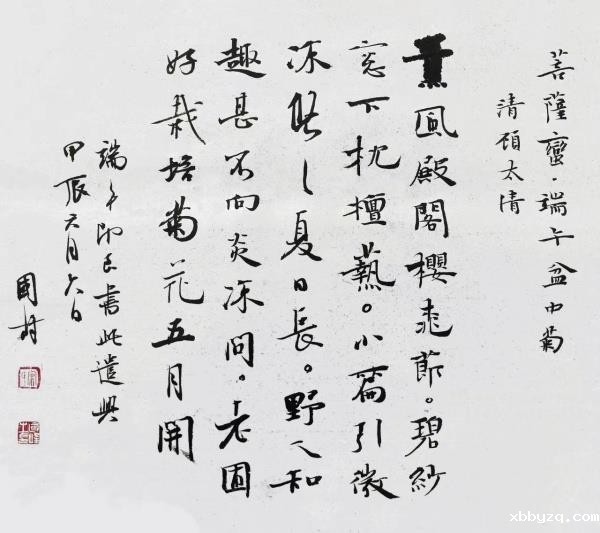 菩薩蠻·端午盆中菊
清顧太清
薰風殿閣櫻桃節。碧紗
窓下枕檀爇。小篇引微
凉悠〻夏日長。野人知
趣甚不向炎凉問。老圃
好栽培菊花五月開
端午即至書此遣興
甲辰六月六日
國材
xbbyzq.com